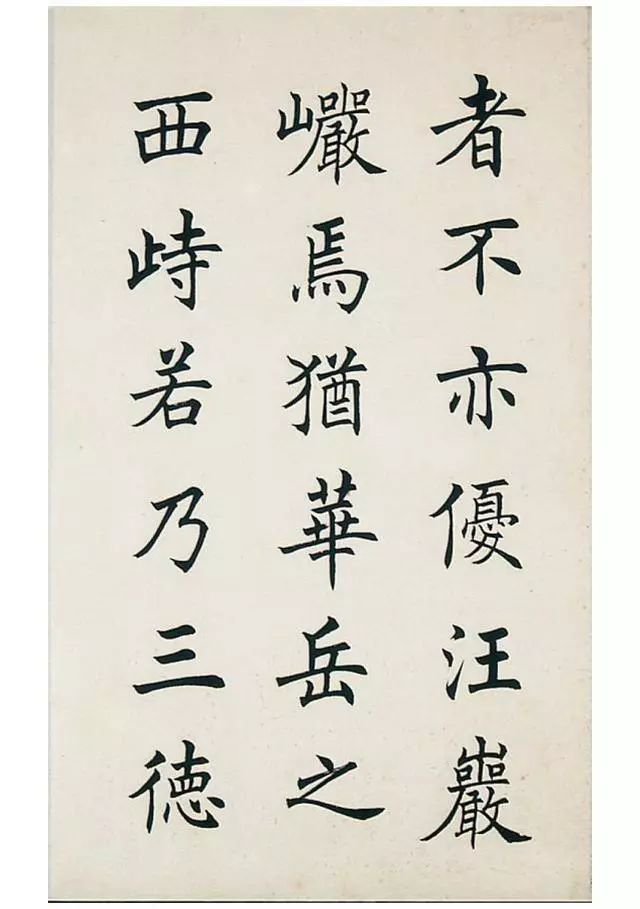 者不亦優汪巖
巗焉猶華岳之
西峙若乃三德